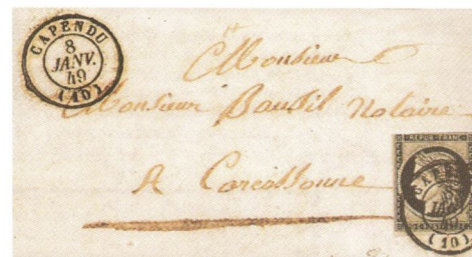 CAPENDU
8
JANV.
49
(10)
Monsieur
Monsieur Bausil Notaire
A Carcassonne
REPUB. FRANC.
CAPEN
8
JANV
(10)